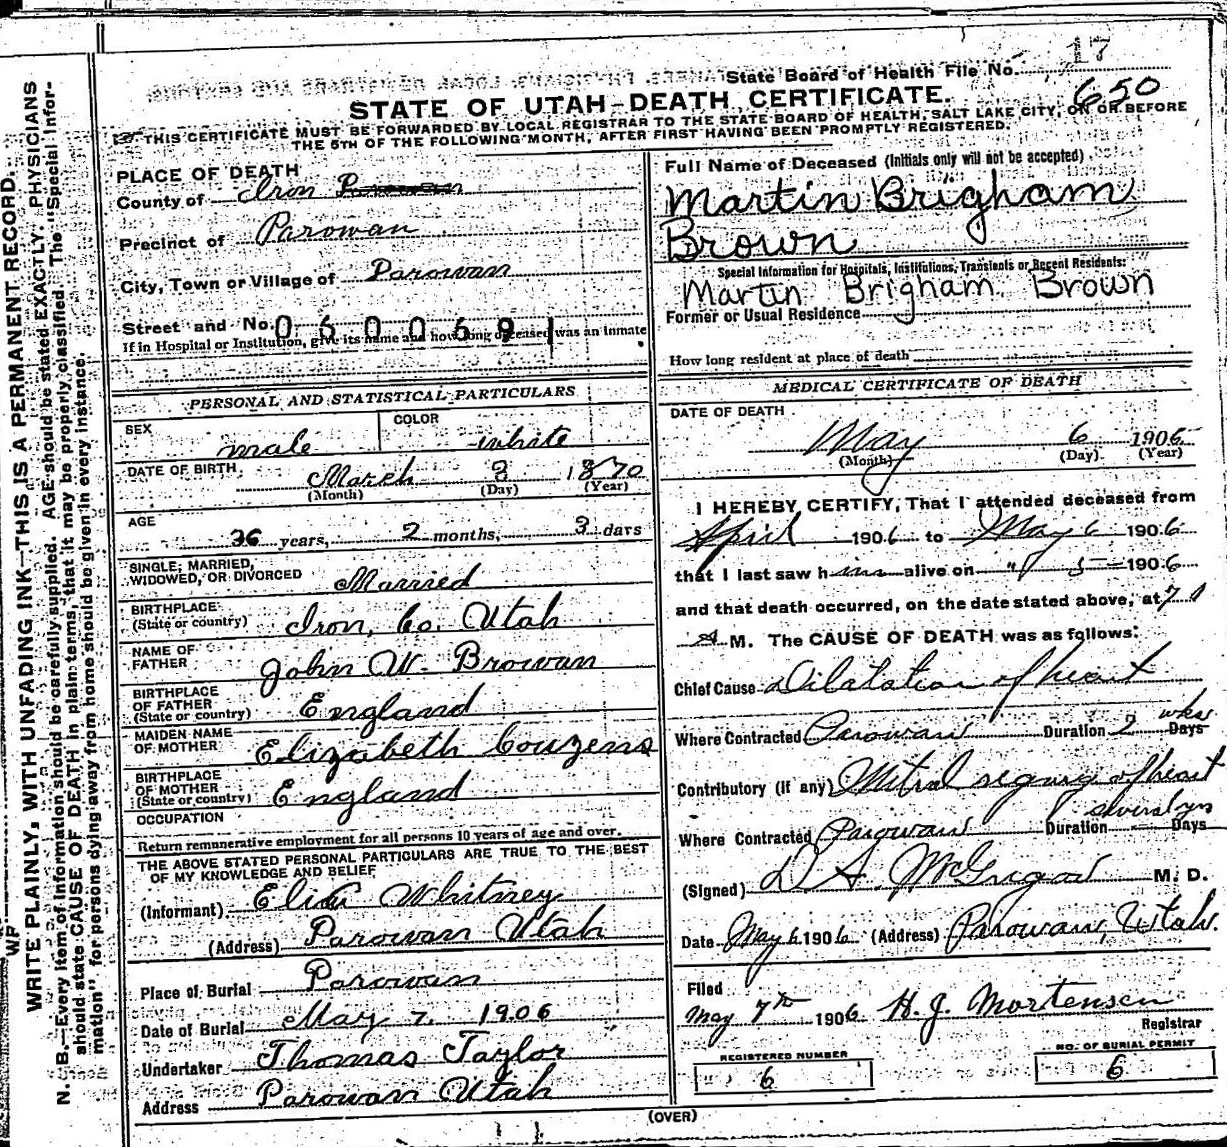 17
State Board of Health File No.
650
STATE OF UTAH-DEATH CERTIFICATE.
THIS CERTIFICATE MUST BE FORWARDED BY LOCAL REGISTRAR TO THE STATE BOARD OF HEALTH, SALT LAKE CITY, ON OR BEFORE
THE 5TH OF THE FOLLOWING MONTH, AFTER FIRST HAVING BEEN PROMPTLY REGISTERED.
WRITE PLAINLY, WITH UNFADING INK-THIS IS A PERMANENT RECORD.
N. B.-Every item of information should be carefully supplied. AGE should be stated EXACTLY. PHYSICIANS
should state CAUSE OF DEATH in plain terms, that it may be properly classified. The "Special Infor-
mation" for persons dying away from home should be given in every instance.
PLACE OF DEATH
County of Iron Parowan
Precinct of Parowan
City, Town or Village of Parowan
Street and No. 0600691
If in Hospital or Institution, give its name and how long deceased was an inmate
PERSONAL AND STATISTICAL PARTICULARS
SEX male COLOR white
DATE OF BIRTH March 3 1870
(Month) (Day) (Year)
AGE
36 years, 2 months, 3 days
SINGLE, MARRIED,
WIDOWED, OR DIVORCED Married
BIRTHPLACE
(State or country) Iron, Co. Utah
NAME OF
FATHER John W. Browan
BIRTHPLACE
OF FATHER
(State or country) England
MAIDEN NAME
OF MOTHER Elizabeth Couzens
BIRTHPLACE
OF MOTHER
(State or country) England
OCCUPATION
Return remunerative employment for all persons 10 years of age and over.
THE ABOVE STATED PERSONAL PARTICULARS ARE TRUE TO THE BEST
OF MY KNOWLEDGE AND BELIEF
(Informant) Whitney
(Address) Parowan Utah
Place of Burial Parowan
Date of Burial May 7, 1906
Undertaker Thomas Taylor
Address Parowan Utah
Full Name of Deceased (Initials only will not be accepted)
Martin Brigham
Brown
Special Information for Hospitals, Institutions, Transients or Recent Residents:
Martin Brigham Brown
Former or Usual Residence
How long resident at place of death
MEDICAL CERTIFICATE OF DEATH
DATE OF DEATH
May 6 1906
(Month) (Day) (Year)
I HEREBY CERTIFY, That I attended deceased from
April 1906 to May 6 1906
that I last saw him alive on " 5 1906
and that death occurred, on the date stated above, at 7
A M. The CAUSE OF DEATH was as follows:
Chief Cause Dilatation of heart
Where Contracted Parowan Duration 2 wks Days
Contributory (if any) Mitral regurg of heart
Where Contracted Parowan Duration several yrs Days
(Signed) D A. McGrigor M. D.
Date May 6 1906 (Address) Parowan, Utah.
Filed
May 7th 1906 H. J. Mortensen
Registrar
REGISTERED NUMBER
6
NO. OF BURIAL PERMIT
6
(OVER)